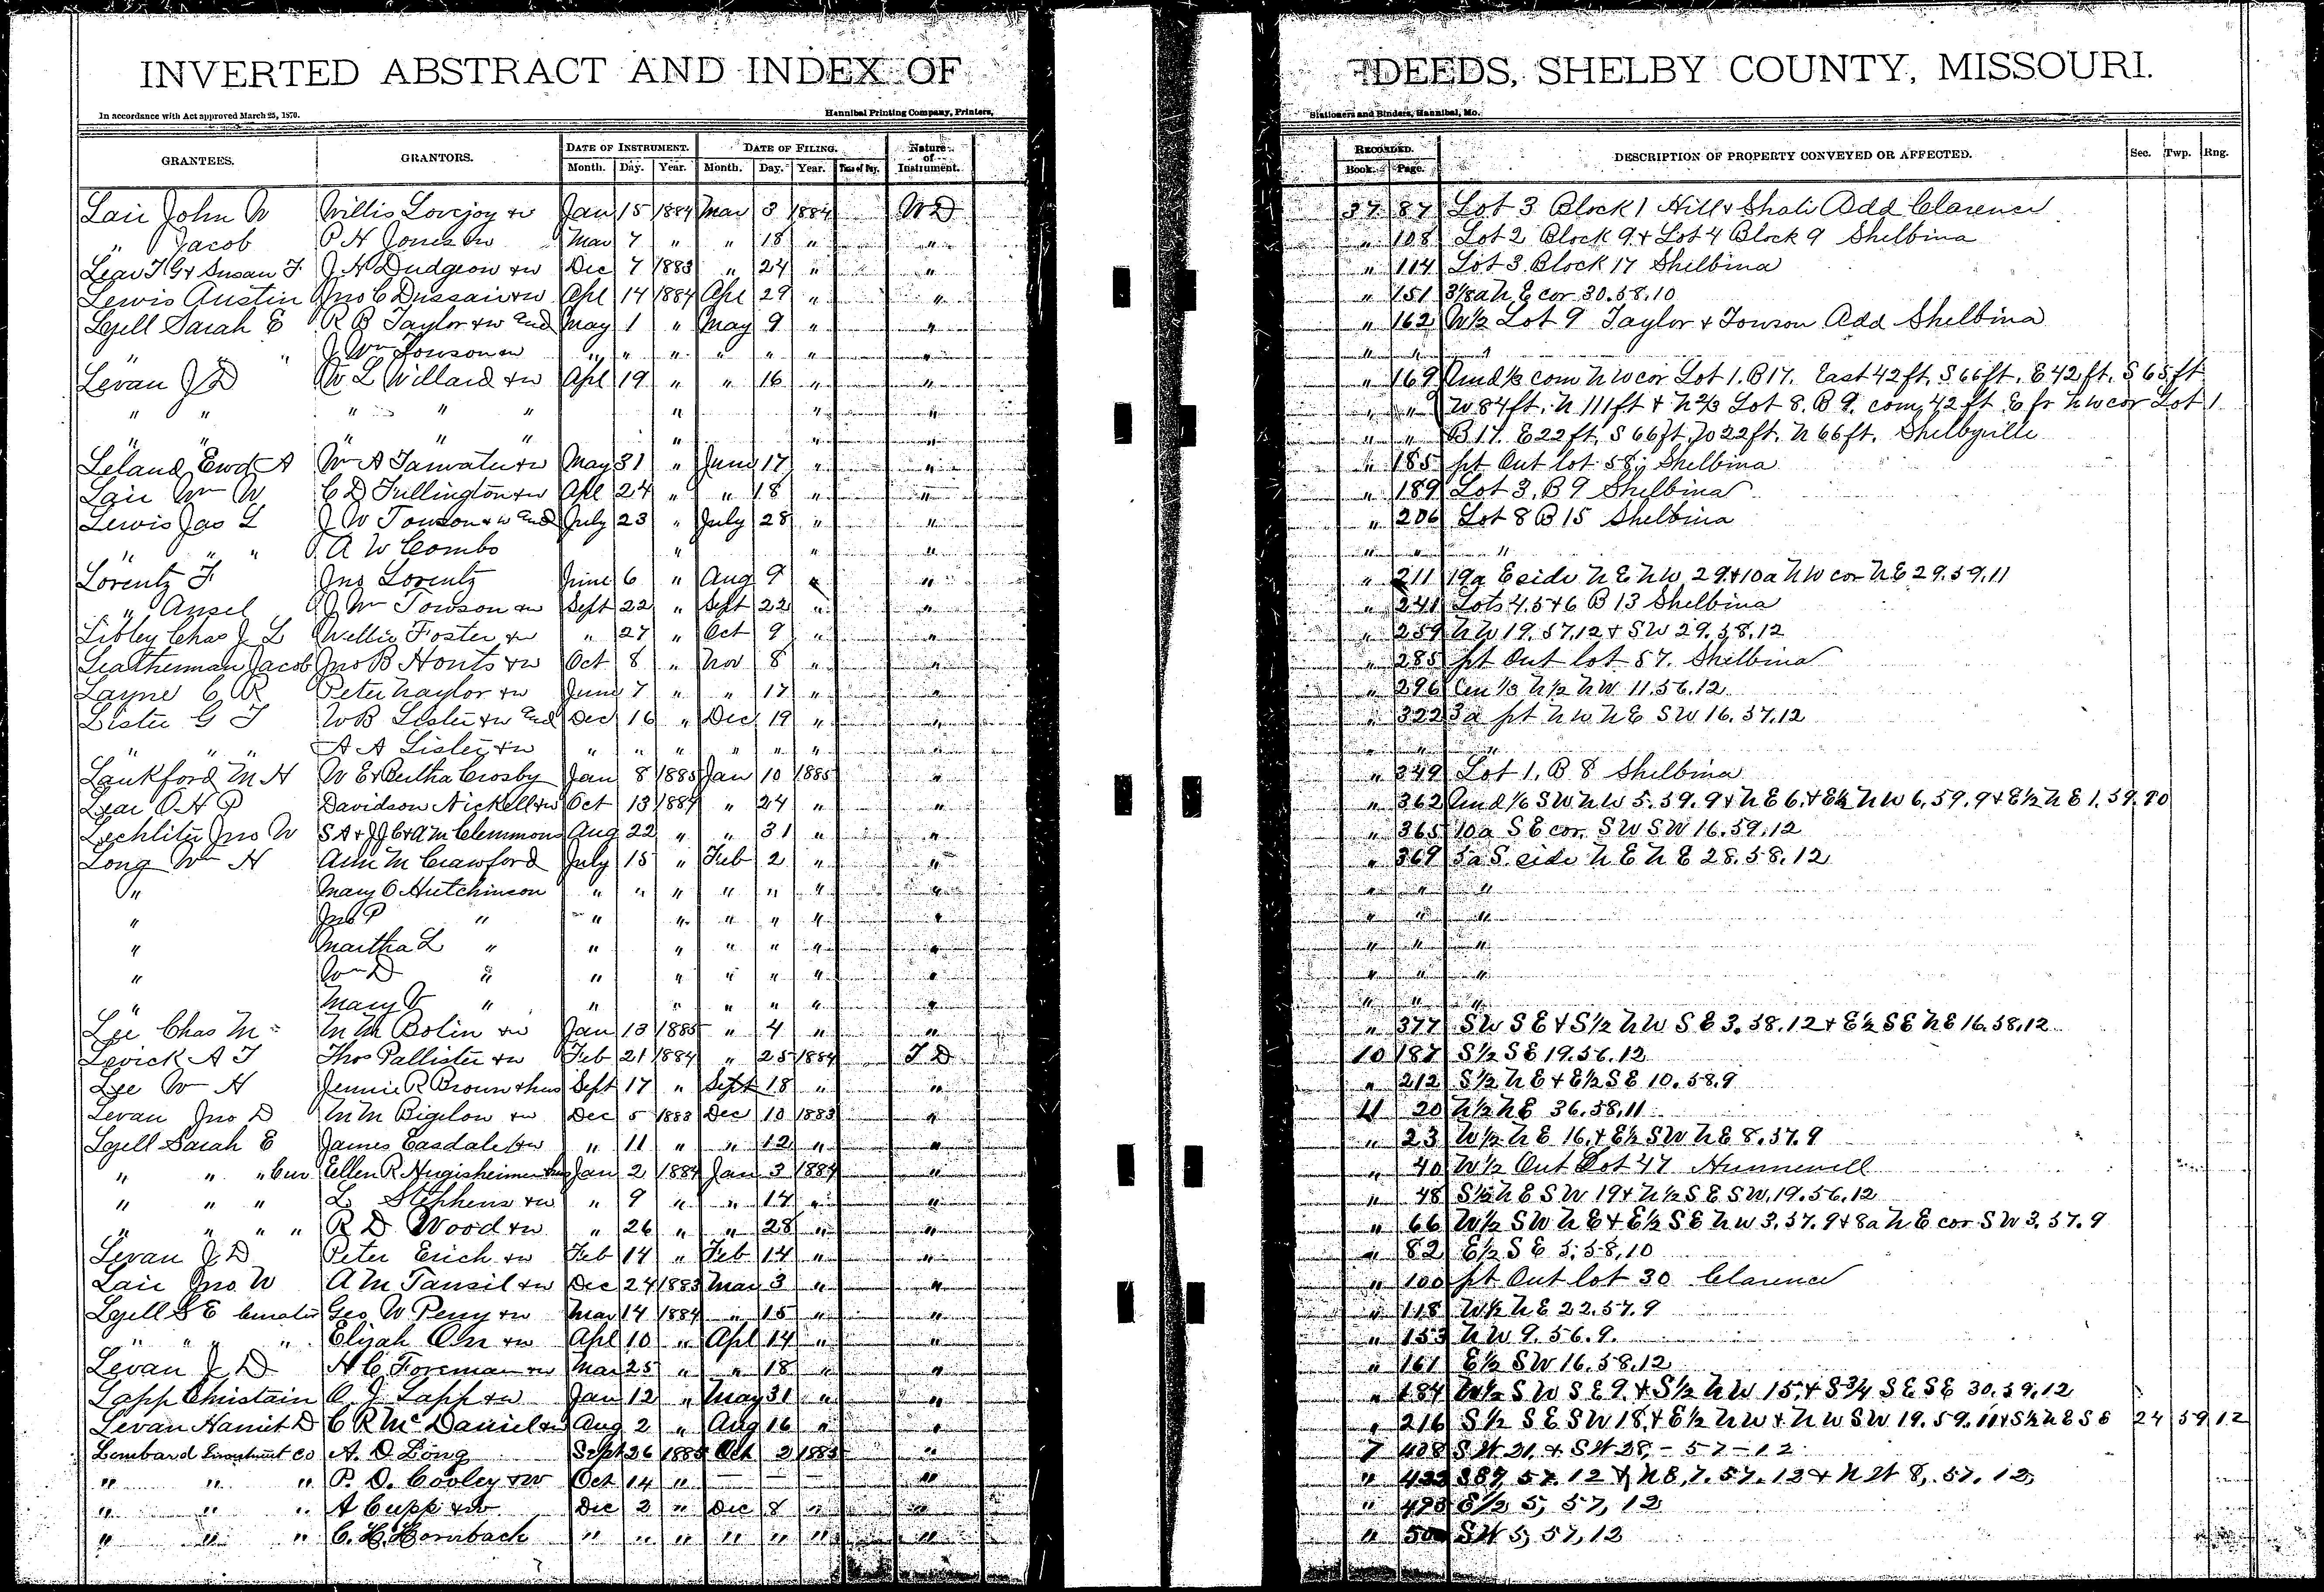 INVERTED ABSTRACT AND INDEX OF DEEDS, SHELBY COUNTY, MISSOURI.
In accordance with Act approved March 25, 1870. Hannibal Printing Company, Printers, Stationers and Binders, Hannibal, Mo.
GRANTEES. GRANTORS. DATE OF INSTRUMENT. DATE OF FILING. Nature of Instrument. RECORDED. DESCRIPTION OF PROPERTY CONVEYED OR AFFECTED. Sec. Twp. Rng.
Month. Day. Year. Month. Day. Year. Book. Page.
Lair John W Willis Lovejoy & w Jan 15 1884 Mar 3 1884 W D 37 87 Lot 3 Block 1 Hill & Add Clarence
" Jacob P H Jones & w Mar 7 " " 18 " " " 108 Lot 2 Block 9 & Lot 4 Block 9 Shelbina
Lear T G & Susan F. J H Dudgeon & w Dec 7 1883 " 24 " " " 114 Lot 3 Block 17 Shelbina
Lewis Austin Jno C & w Apl 14 1884 Apl 29 " " " 151 3/8 a N E cor 30.58.10
Lyell Sarah E R B Taylor & w and May 1 " May 9 " " " 162 W½ Lot 9 Taylor & Towson Add Shelbina
" " J Wm Towson & w " " " " " " " " " "
Levan J D W L Willard & w Apl 19 " " 16 " " " 169 Und ⅓ com N W cor Lot 1. B 17. East 42 ft. S 66 ft. E 42 ft. S 65 ft
" " " " " " " " " " W 84 ft. N 111 ft & N ⅔ Lot 8. B 9. com 42 ft E fr N W cor Lot 1
" " " " " " " " " " B 17. E 22 ft. S 66 ft. W 22 ft. N 66 ft. Shelbyville
Leland Ewd A Wm A & w May 31 " June 17 " " " 185 pt Out lot 58, Shelbina
Lair Wm W C D Fullington & w Apl 24 " " 18 " " " 189 Lot 3, B 9 Shelbina
Lewis Jas L J W Towson & w and July 23 " July 28 " " " 206 Lot 8 B 15 Shelbina
" " " A W Combs " " " " " "
Lorentz F. Jno Lorentz June 6 " Aug 9 " " " 211 19a E side N E N W 29 & 10a N W cor N E 29.59.11
" Ansel J Wm Towson & w Sept 22 " Sept 22 " " " 241 Lots 4.5 & 6 B 13 Shelbina
Libley Chas J L Willie Foster & w " 27 " Oct 9 " " " 259 N W 19.57.12 & S W 29.58.12
Leatherman Jacob Jno B Houts & w Oct 8 " Nov 8 " " " 285 pt Out lot 57. Shelbina
Layne C R Peter Naylor & w June 7 " " 17 " " " 296 Cen ⅓ N ½ N W 11.56.12
Lister G T W B Lister & w and Dec 16 " Dec 19 " " " 322 3a pt N W N E S W 16.57.12
" " " A A Lister & w " " " " " " " " " "
Lankford M H W E & Bertha Crosby Jan 8 1885 Jan 10 1885 " " 349 Lot 1, B 8 Shelbina
Lear O H P Davidson Nickell & w Oct 13 1884 " 24 " " " 362 Und ⅙ S W N W 5.59.9 & N E 6. & E½ N W 6.59.9 & E½ N E 1.59.10
Lechliter Jno W S A & J J C & A M Clemmons Aug 22 " " 31 " " " 365 10a S E cor. S W S W 16.59.12
Long Wm H Ann M Crawford July 15 " Feb 2 " " " 369 5a S. side N E N E 28.58.12
" Mary O Hutchinson " " " " " " " " " "
" Jno P " " " " " " " " " "
" Martha L " " " " " " " " " "
" Wm D " " " " " " " " " "
" Mary V " " " " " " " " " "
Lee Chas M M M Bolin & w Jan 13 1885 " 4 " " " 377 S W S E & S½ N W S E 3.58.12 & E½ S E N E 16.58.12
Levick A T Thos Pallister & w Feb 21 1884 " 25 1884 T D 10 187 S½ S E 19.56.12
Lee Wm H Jennie R Brown & hus Sept 17 " Sept 18 " " " 212 S½ N E & E½ S E 10.58.9
Levan Jno D M M Bigelow & w Dec 5 1883 Dec 10 1883 " 11 20 N½ N E 36.58.11
Lyell Sarah E James Easdale & w " 11 " " 12 " " " 23 W½ N E 16. & E½ S W N E 8.57.9
" " " Cur Ellen R & hus Jan 2 1884 Jan 3 1884 " " 40 W½ Out Lot 47 Hunnewell
" " " L Stephens & w " 9 " " 14 " " " 48 S½ N E S W 19 & N½ S E S W. 19.56.12
" " " " R D Wood & w " 26 " " 28 " " " 66 W½ S W N E & E½ S E N W 3.57.9 & 8a N E cor S W 3.57.9
Levan J D Peter Erich & w Feb 14 " Feb 14 " " " 82 E½ S E 5.58.10
Lair Jno W A M Tansil & w Dec 24 1883 Mar 3 " " " 100 pt Out lot 30 Clarence
Lyell S E Curator Geo W Perry & w Mar 14 1884 " 15 " " " 118 W½ N E 22.57.9
" " " " Elijah Orr & w Apl 10 " Apl 14 " " " 153 N W 9.56.9.
Levan J D H C Foreman & w Mar 25 " " 18 " " " 161 E½ S W 16.58.12
Lapp Christain C. J Lapp & w Jan 12 " May 31 " " " 184 W½ S W S E 9. & S½ N W 15. & S ¾ S E S E 30.59.12
Levan Harriet D C R McDaniel & w Aug 2 " Aug 16 " " " 216 S½ S E S W 18. & E½ N W & N W S W 19.59.11 & S½ N E S E 24 59 12
Lombard Investment Co A. D Long Sept 26 1885 Oct 2 1885 " 7 408 S W 21. & S W 28, - 57 - 12
" " " P. D. Cooley & w Oct 14 " — — — " " 422 57.12 & N E, 7.57.12 & N W 8, 57.12,
" " " A Cupp & w Dec 2 " Dec 8 " " " 493 E½ 5, 57, 12
" " " C. H. Hornback " " " " " " " " S W 5, 57, 12